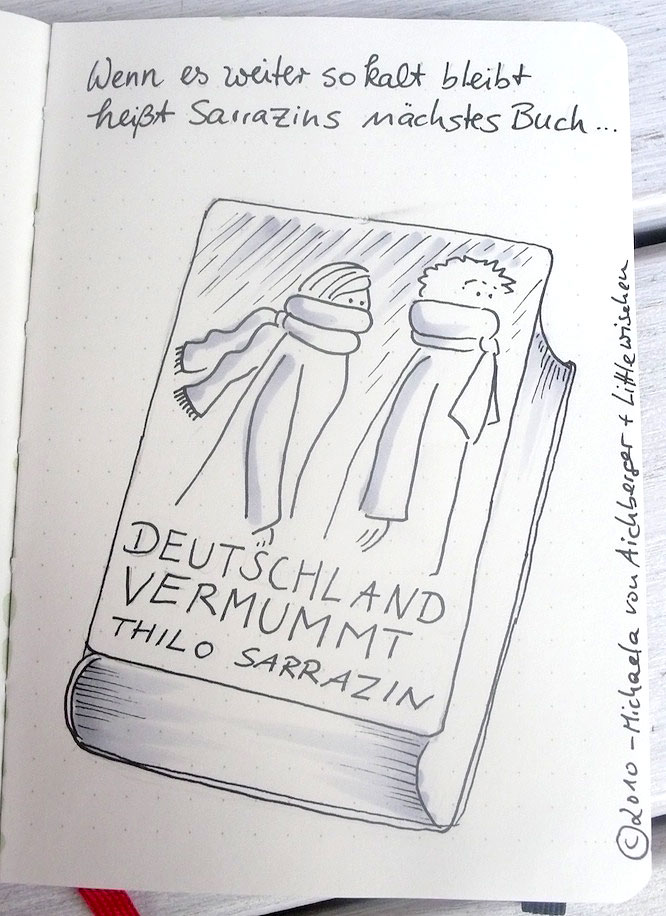 Wenn es weiter so kalt bleibt
heißt Sarrazins nächstes Buch...
DEUTSCHLAND
VERMUMMT
THILO SARRAZIN
©2010 - Michaela von Aichberger + Littlewisehen